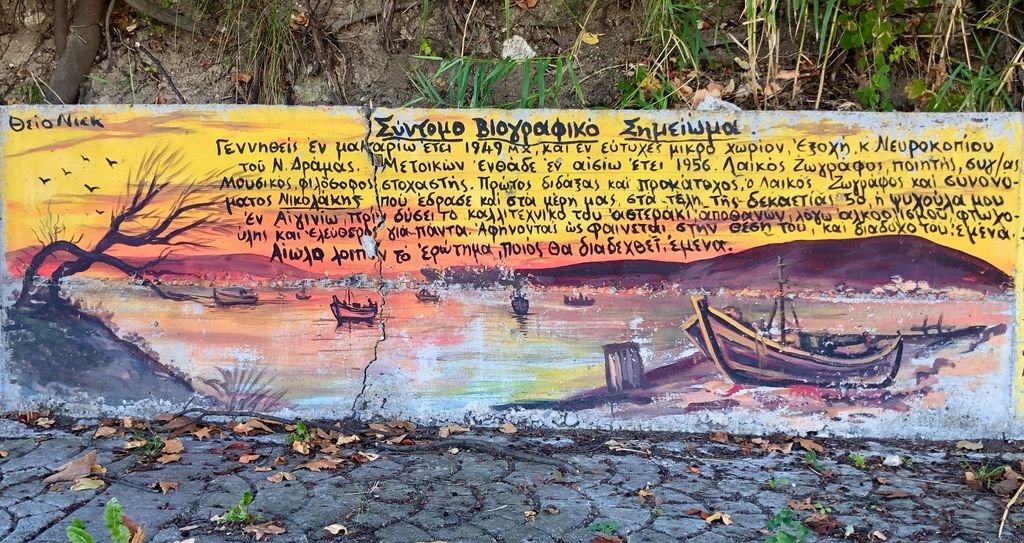 Θείο Νίεκ
Σύντομο Βιογραφικό Σημείωμα
Γεννηθείς εν μακαρίω έτει 1949 μχ, και εν ευτυχές μικρό χωρίον, Εξοχή, κ Νευροκοπίου
του Ν. Δράμας. Μετοικών ένθάδε εν αισίω έτει 1956. Λαικός Ζωγράφος, ποητής, συγ/ας
Μουσικός, φιλόσοφος στοχαστής. Πρώτος διδάξας και προκάτοχος, ο Λαικός Ζωγράφος και συνονό-
ματος Νικολάκης που έδρασε και στα μέρη μας, στα τέλη της δεκαετίας 50, ή ψυχούλα μου
Έν Αίγινίω πριν δύσει το καλλιτεχνικό του αστεράκι, αποθανων, λόγω αλκοολισμού, φτωχο-
ύλης και έλεύθερος για πάντα. Αφήνοντας ως φαίνεται στην θέση του, και διάδοχο του έμενα.
Αίωλο λοιπόν το έρώτημα, ποιός θα διαδεχθεί έμενα.